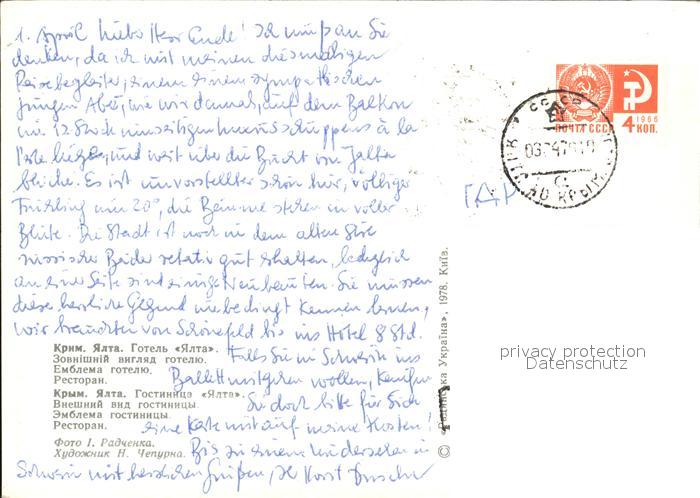 1. April Lieber Herr Ende! Ich muß an Sie
denken, da ich mit meinem diesmaligen
Reisebegleiter, einem sympathischen
jungen, wie wir damals, auf dem Balkon
im 12. Stock eines riesigen à la
liege, und weit über die Bucht von Jalta
blicke. Es ist unvorstellbar schön hier, völliger
Frühling um 20°, die Bäume stehen in voller
Blüte. Die Stadt ist noch in dem alten
russischer Bäder relativ gut erhalten, lediglich
an einer Seite sind einige Neubauten. Sie müssen
diese herrliche Gegend unbedingt kennen lernen,
wir brauchten von Schönefeld bis ins Hotel 8 Std.
Falls Sie in Schwerin ins
Ballett mitgehen wollen, kaufen
Sie doch bitte für Sich
eine Karte mit auf meine Kosten!
Bis zu einem Wiedersehen in
Schwerin mit herzlichen Grüßen, Ihr Horst
Крим. Ялта. Готель «Ялта».
Зовнішній вигляд готелю.
Емблема готелю.
Ресторан.
Крым. Ялта. Гостиница «Ялта».
Внешний вид гостиницы.
Эмблема гостиницы.
Ресторан.
Фото І. Радченка.
Художник Н. Чепурна.
© «Радянська Україна», 1978. Київ.
ПОЧТА СССР
1966
4 КОП.
СССР
privacy protection
Datenschutz